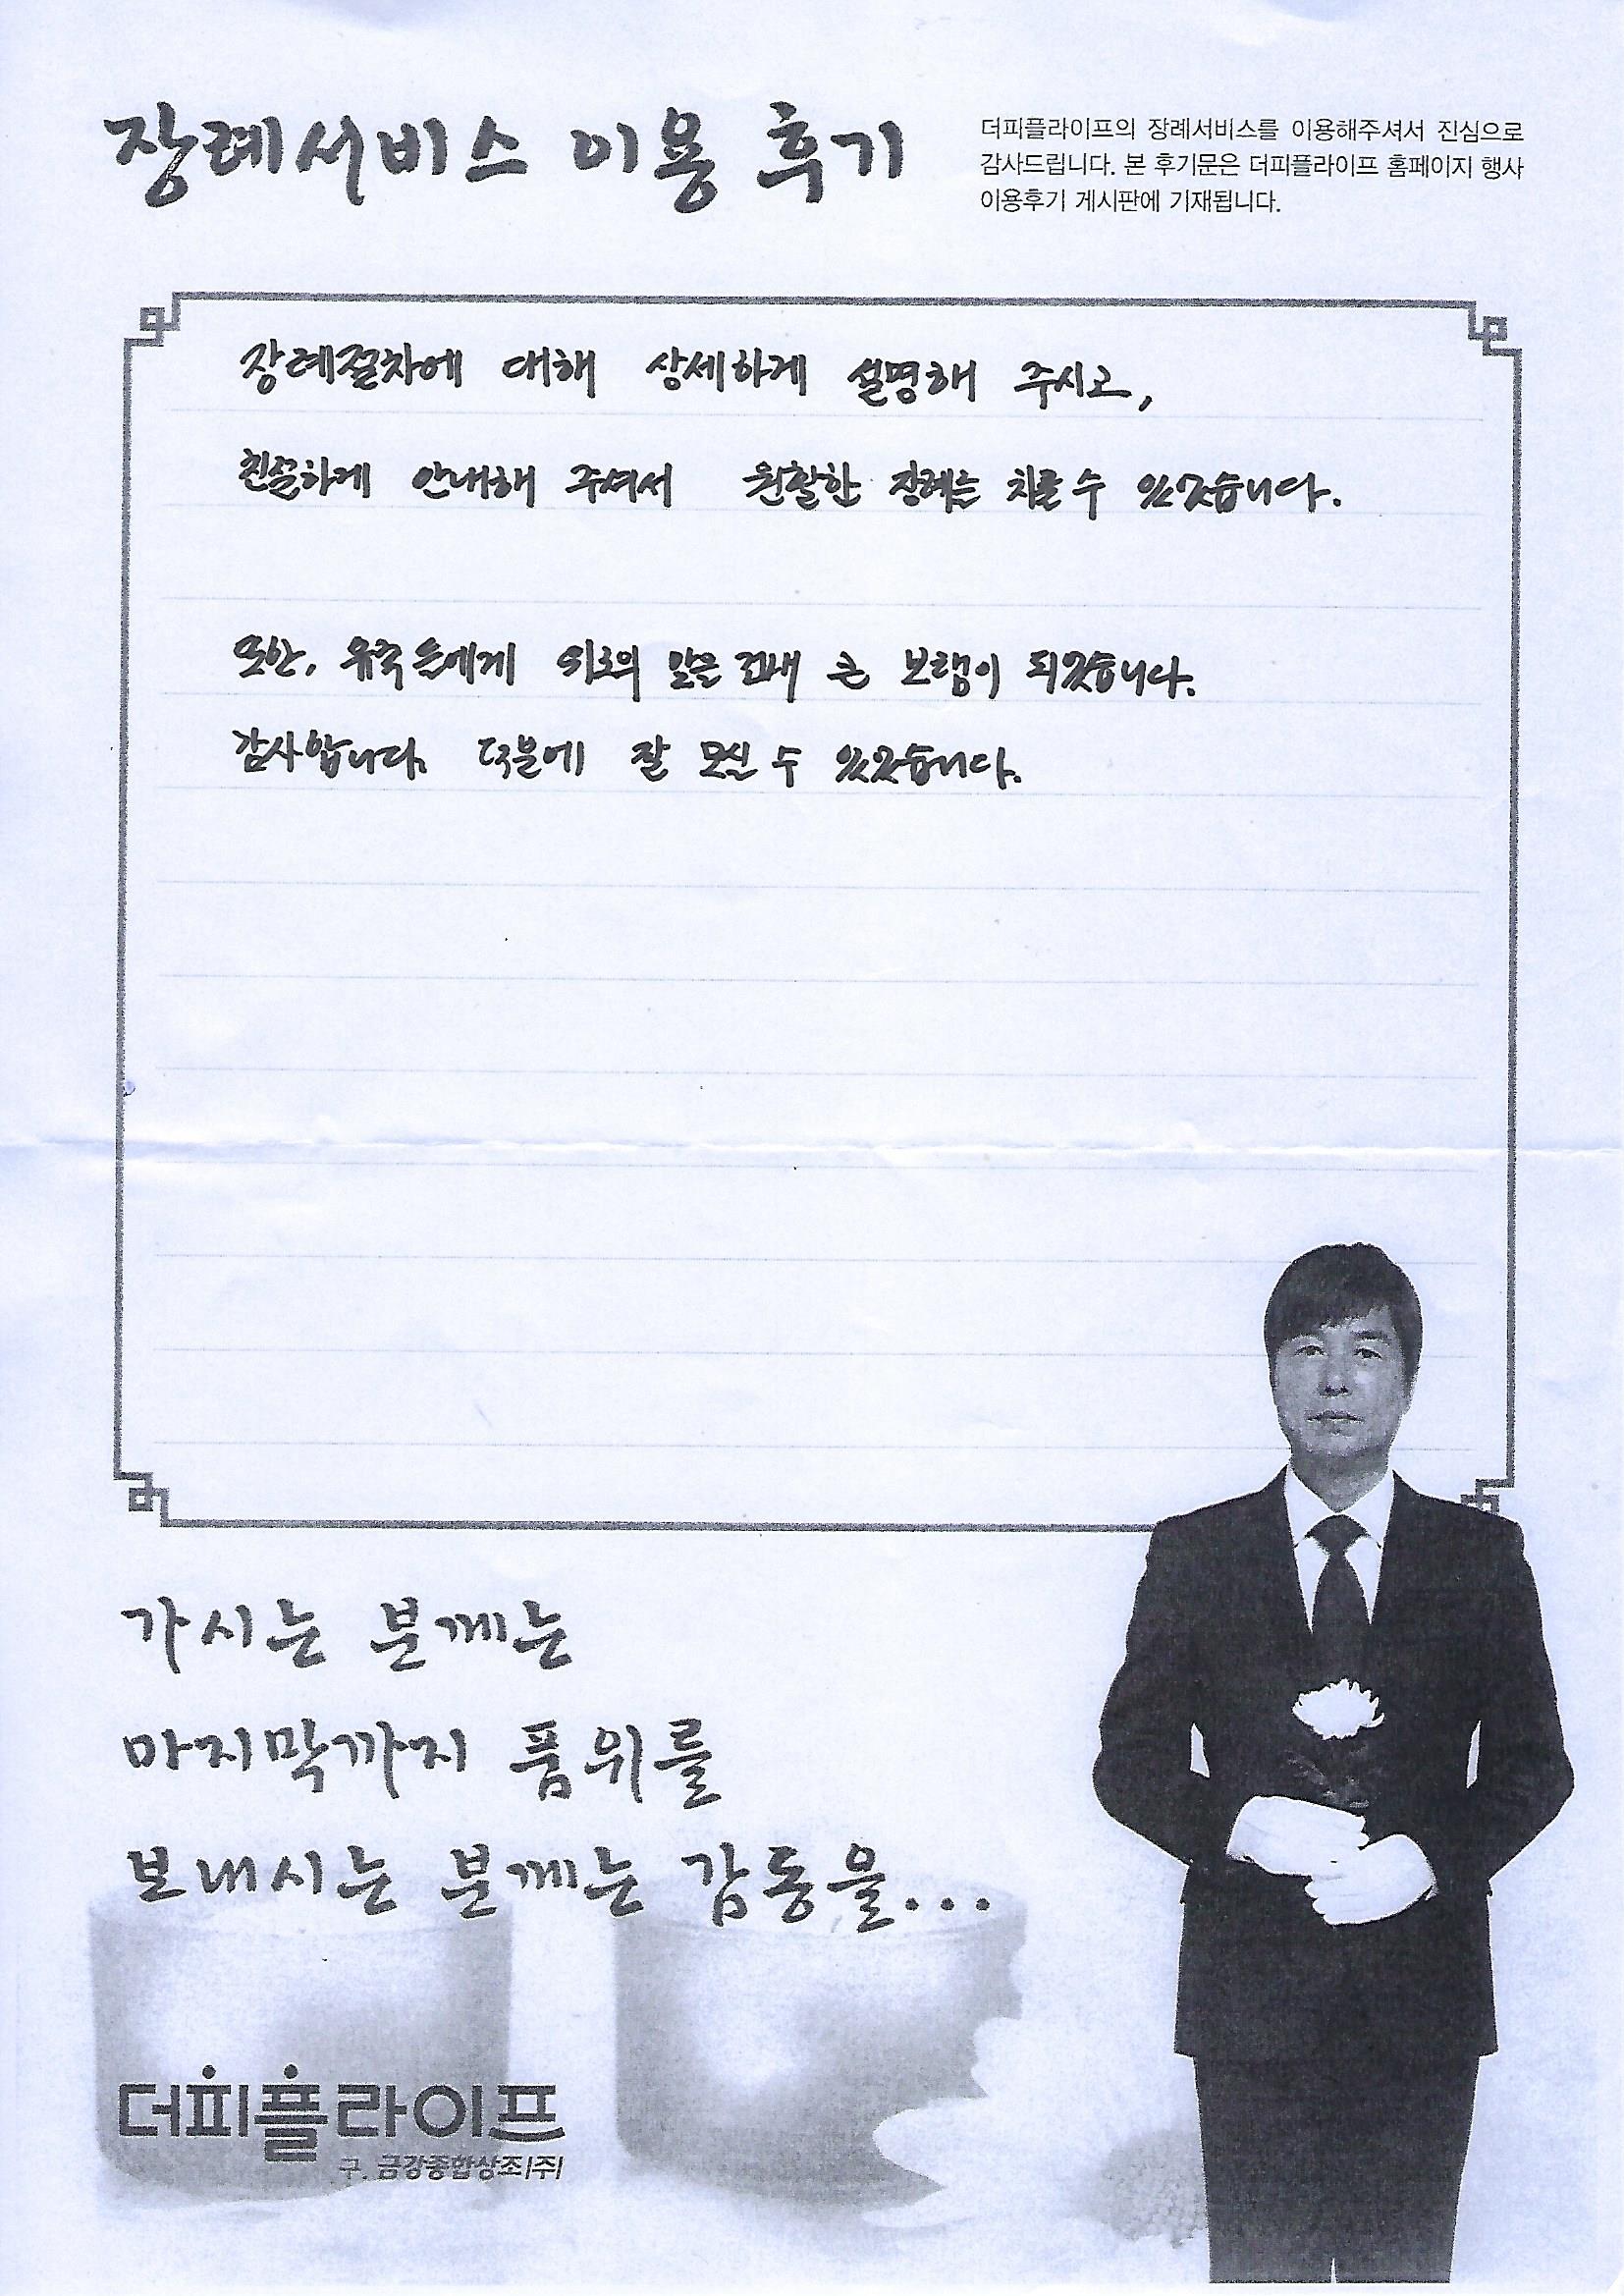 장례서비스 이용 후기
더피플라이프의 장례서비스를 이용해주셔서 진심으로
감사드립니다. 본 후기문은 더피플라이프 홈페이지 행사
이용후기 게시판에 기재됩니다.
장례절차에 대해 상세하게 설명해 주시고,
친절하게 안내해 주셔서 원활한 장례를 치를 수 있었습니다.
또한, 유족들에게 위로의 말을 건네 큰 보탬이 되었습니다.
감사합니다. 덕분에 잘 모실 수 있었습니다.
가시는 분께는
마지막까지 품위를
보내시는 분께는 감동을...
더피플라이프
구. 금강종합상조(주)